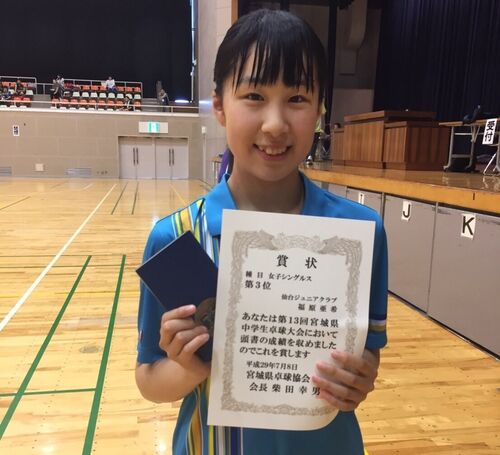 賞状
種目 女子シングルス
第3位
仙台ジュニアクラブ
福原亜希
あなたは第13回宮城県
中学生卓球大会において
頭書の成績を収めました
のでこれを賞します
平成29年7月8日
宮城県卓球協会
会長 柴田幸男
受付
I
J
K